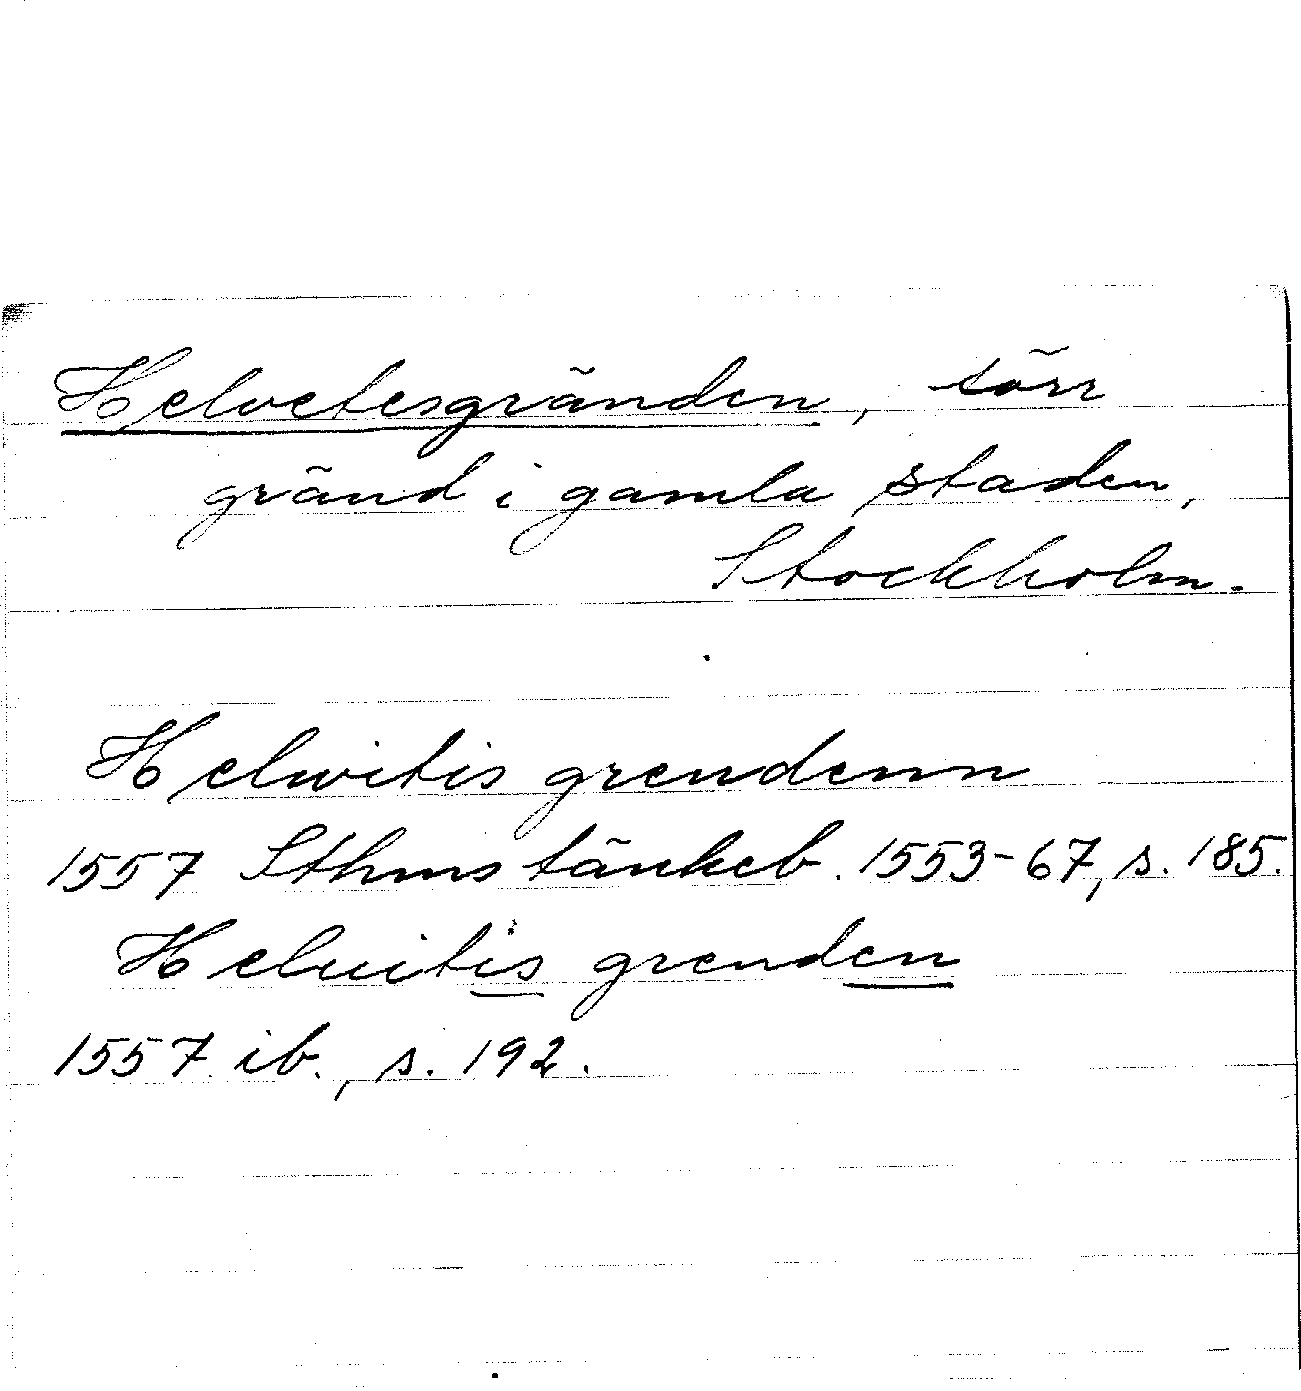 Helvetesgränden, törr
gränd i gamla staden,
Stockholm.
Helwitis grendenn
1557 Sthms tänkeb. 1553-67, s. 185.
Heluitis grenden
1557 ib., s. 192.